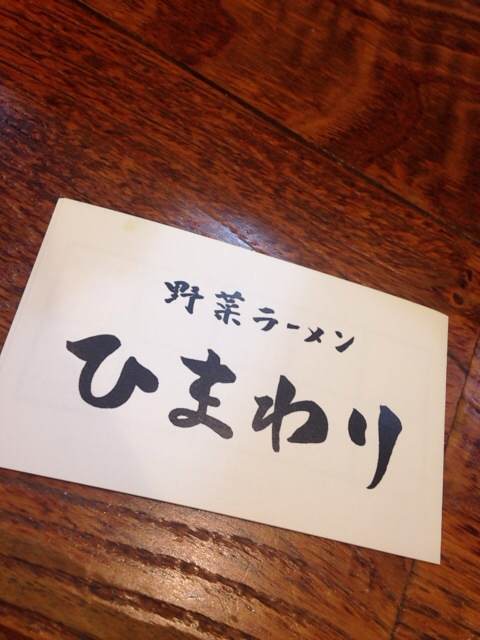 野菜ラーメン
ひまわり